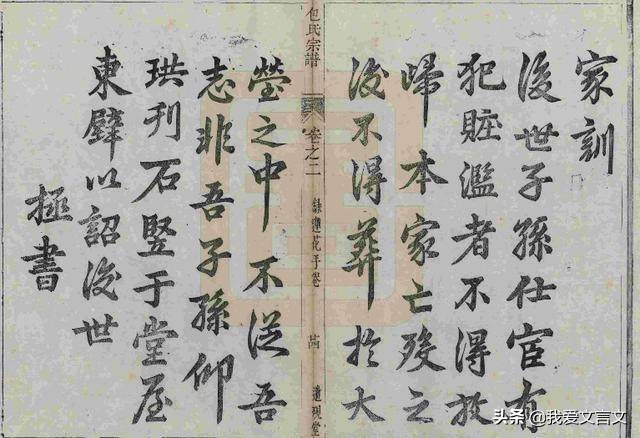 家訓
後世子孫仕宦有
犯賍濫者不得放
歸本家亡殁之
後不得葬於大
包氏宗譜
卷之二
蓮花手卷
遺硯堂
塋之中不從吾
志非吾子孫仰
珙刊石竪于堂屋
東壁以詔後世
拯書
头条 @我爱文言文